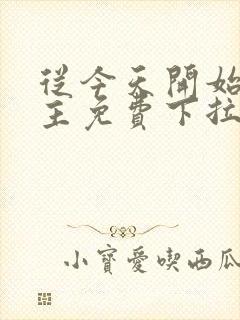 從今天開始
主免費下拉
小寶愛喫西瓜